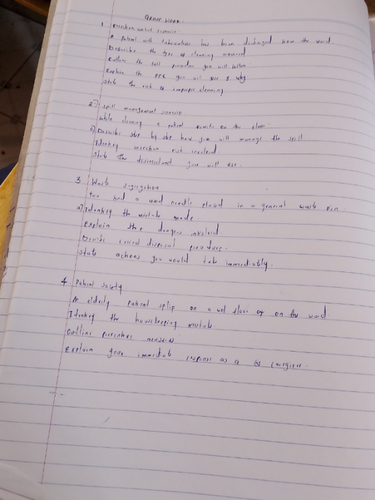 GROUP WORK
1. Infection control scenario
A patient with tuberculosis has been discharged from the ward
Describe the type of cleaning required
Outline the step procedure you will follow
Explain the PPE you will use & why
State the risk of improper cleaning
2. Spill management scenario
while cleaning a patient vomits on the floor.
Describe step by step how you will manage the spill
Identify infection risk involved
State the disinfectant you will use.
3. Waste segregation
You find a used needle placed in a general waste bin.
Identify the mistake made.
Explain the dangers involved
Describe correct disposal procedure.
State actions you would take immediately.
4 Patient safety
An elderly patient slips on a wet floor on the ward
Identify the housekeeping mistake
Outline preventive measures
Explain your immediate response as a caregiver